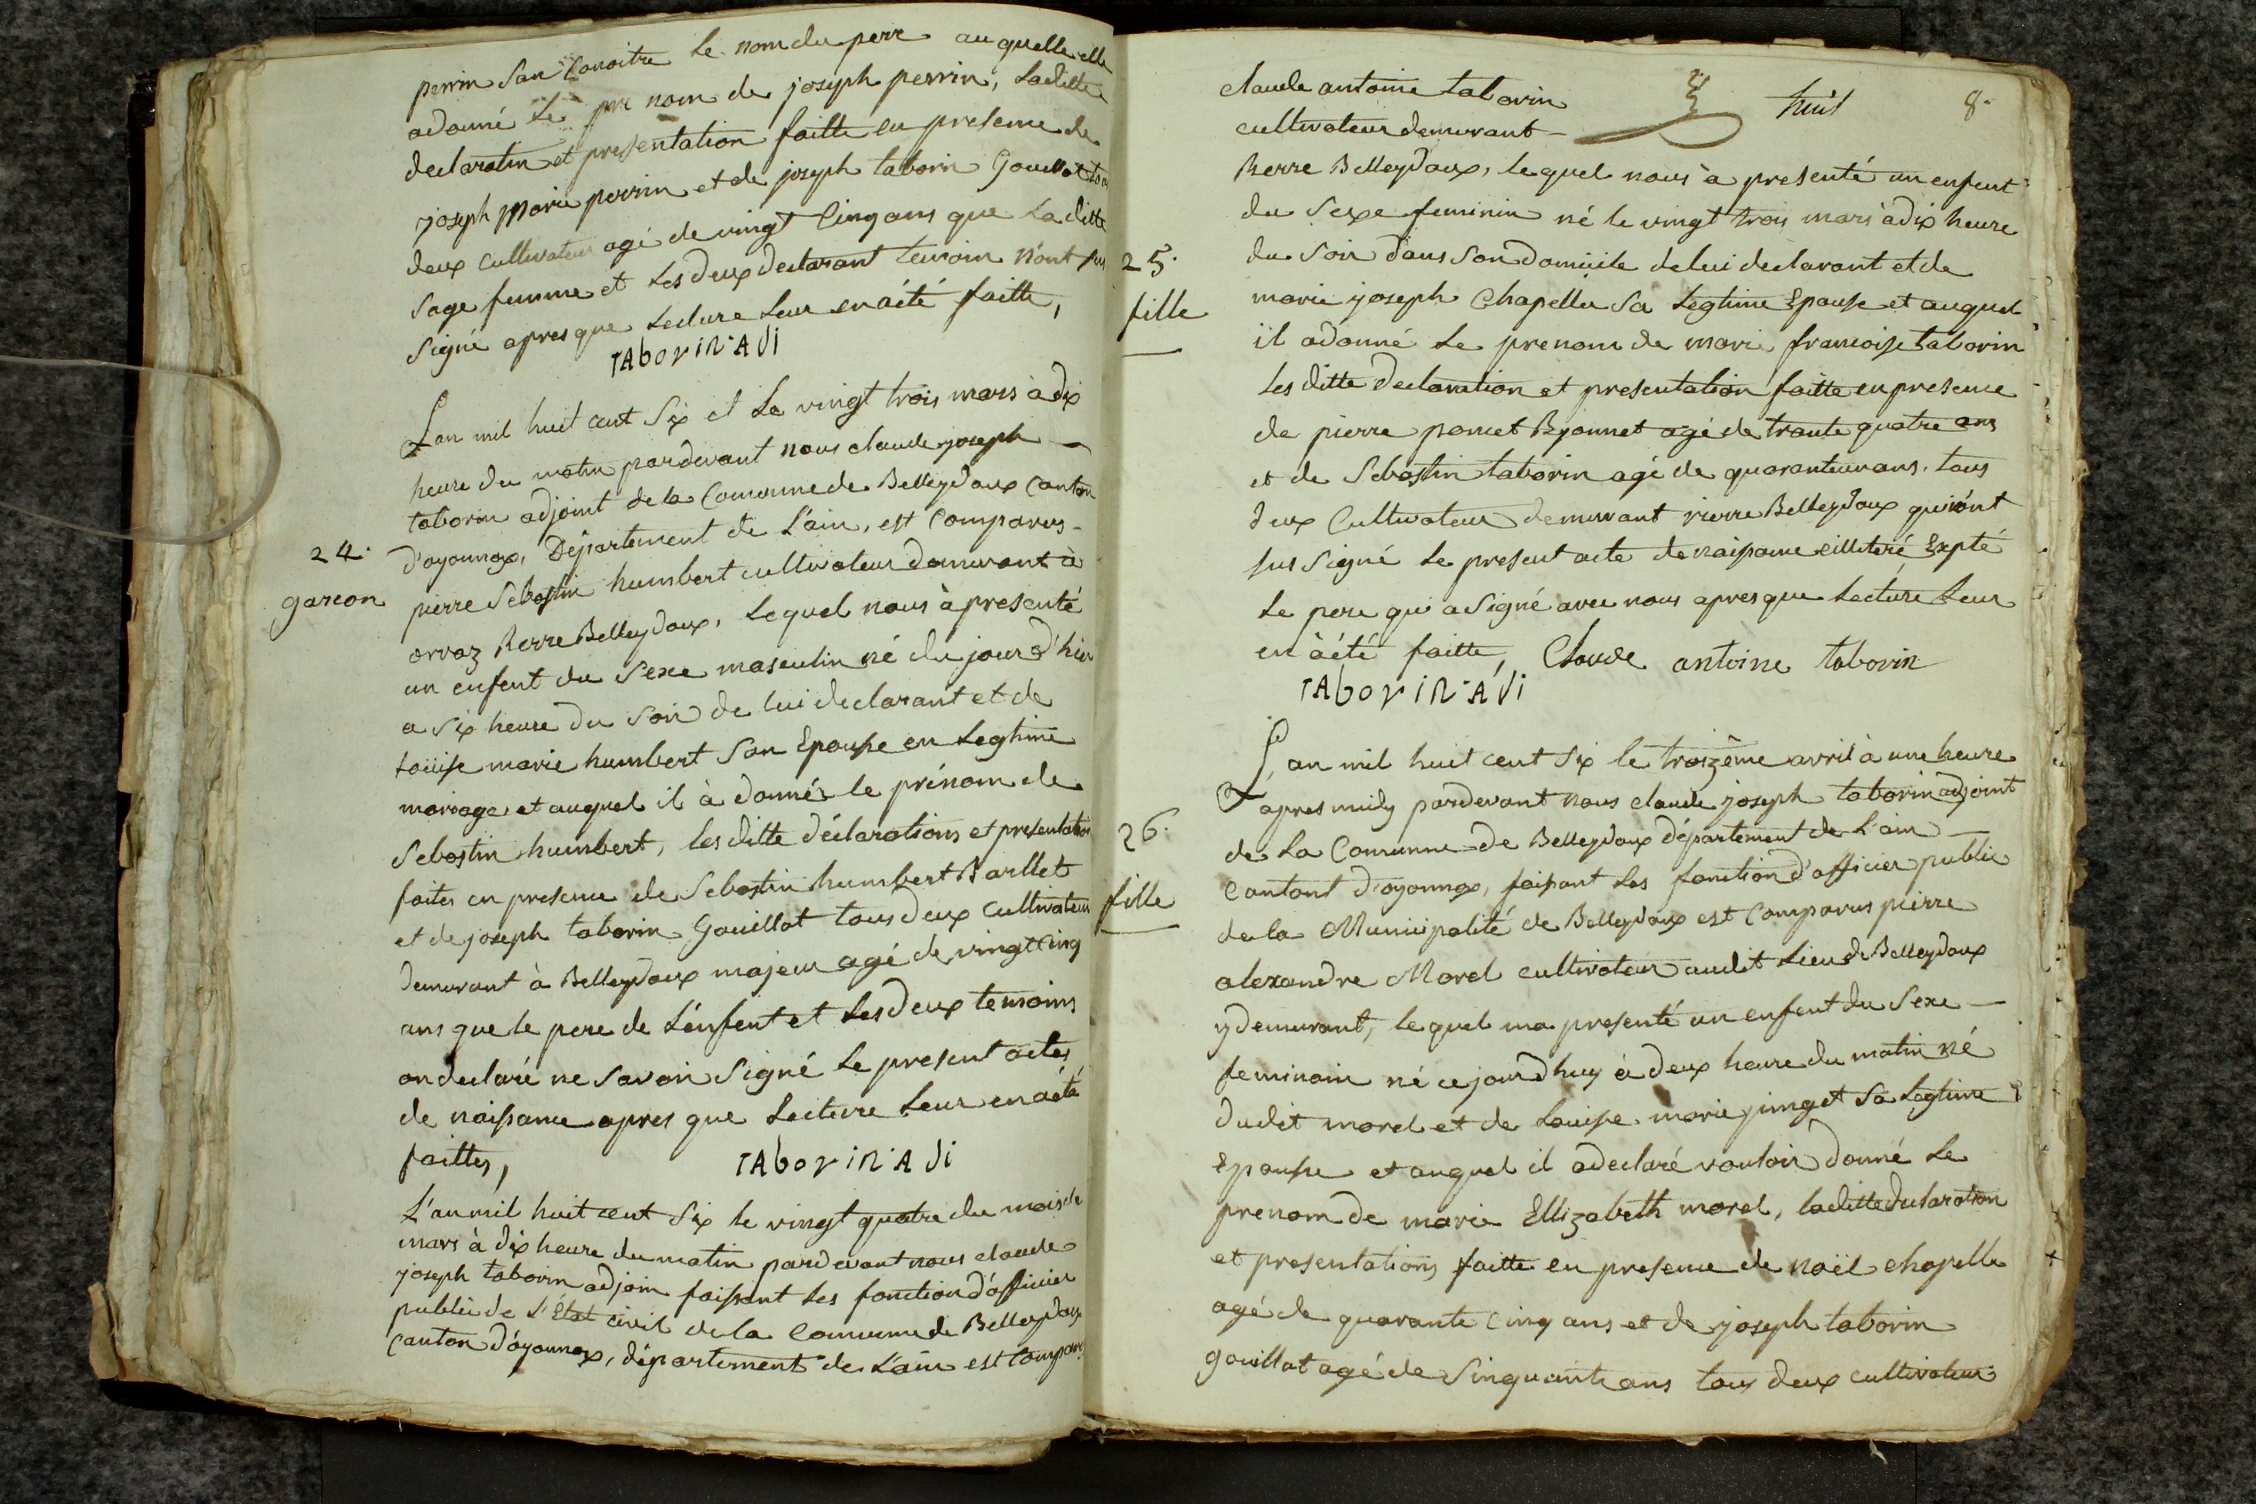 perrin san Conoitre le nom du perre auquelle elle
adonné le pre nom de joseph perrin, laditte
declaratin et presentation faitte en presence de
joseph Marie perrin et de joseph taborin Gouillot tous
deux cultivateur agé de vingt Cinq ans que La ditte
sage femme et les deux declarant temoin n'ont pas
signé apres que Lecture Leur en aété faitte,
TAboriN·Adi
24.
garcon
Lan mil huit cent Six et Le vingt trois mars à dix
heure du matin pardevant nous claude joseph
taborin adjoint de la Commune de Belleydoux Canton
d'oyonnax, Département de L'ain, est Comparus
pierre Sebastin humbert cultivateur demurant à
orvaz Rerre Belleydoux, Lequel nous à presenté
un enfent du Sexe masculin né du jour d'hier
a six heure du Soir de lui declarant et de
Loüise marie humbert Son Epouse en Legtime
mariage et auquel il à donnér le prénom de
Sebastin humbert, les ditte déclarations et presentation
faites en presence de Sebastin humbert Barllet
et de joseph taborin Gouillot tous deux Cultivateur
demurant à Belleydoux majeur agé de vingt Cinq
ans que le pere de L'enfent et Les deux temoins
on declaré ne savoir Signé Le present actes
de naissance apres que Lecture Leur en aété
faittes,
TAboriN·Adi
L'an mil huit cent Six le vingt quatre du mois de
mars à dix heure du matin pardevant nous claude
joseph taborin adjoin faissant Les fonction d'officier
public de L'État civil de la Commune de Belleydoux
Canton d'oyonnax, département de L'ain est Comparu
claude antoine taborin
huit 8.
cultivateur demurant
25.
fille
Rerre Belleydoux, lequel nous à presenté un enfent
du Sexe feminin né le vingt trois mars à dix heure
du Soir dans Son domicile de lui declarant et de
marie joseph Chapellu Sa Legtime Epouse et auquel
il adonné Le prenom de marie francoise taborin
Les ditte declaration et presentation faitte en presence
de pierre poncet Byonnet agé de trante quatre ans
et de Sebastin taborin agé de quaranteun ans, tous
deux Cultivateur demurant rierre Belleydoux qui n'ont
sus Signé Le present acte de naissance illiteré Expté
Le pere qui a Signé avec nous apres que Lecture Leur
en àété faitte, Claude antoine taborin
TAboriN·Adi
26.
fille
L'an mil huit cent Six le troizème avril à une heure
apres midy pardevant nous claude joseph taborin adjoint
de La Commune de Belleydoux département de L'ain
Cantont d'oyonnax, faissant Les fonction d'officier public
de la Municipalité de Belleydoux est Comparus pierre
alexandre Morel cultivateur audit Lieu de Belleydoux
y demurant, lequel ma presenté un enfent du Sexe
feminain né ce jourdhuy à deux heure du matin né
dudit morel et de Louise marie jinget Sa Legtime
Epouse et auquel il adeclaré vouloir donné Le
prenom de marie Ellizabeth morel, laditte declaration
et presentations faitte en presence de noël chapelle
agé de quarante Cinq ans et de joseph taborin
gouillot agé de Sinquante ans tous deux cultivateur